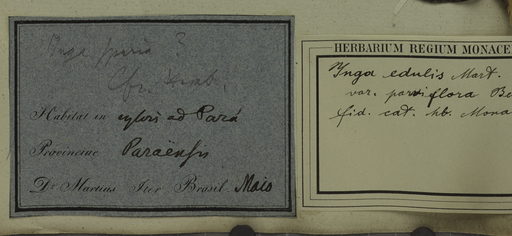 Inga ?
Habitat in sylvis ad Pará
Provinciae Paraënsis
Dr. Martius Iter Brasil. Maio
HERBARIUM REGIUM MONACE
Inga edulis Mart.
var. parviflora Be
fid. cat. hb. Mona